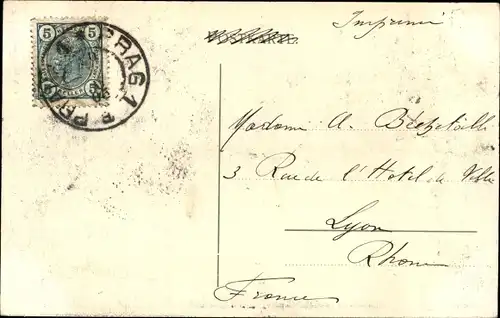 Imprimé
POSTKARTE.
5 5
PRAG 1
Madame A.
3 Rue de l'Hotel de Ville
Lyon
Rhone
France